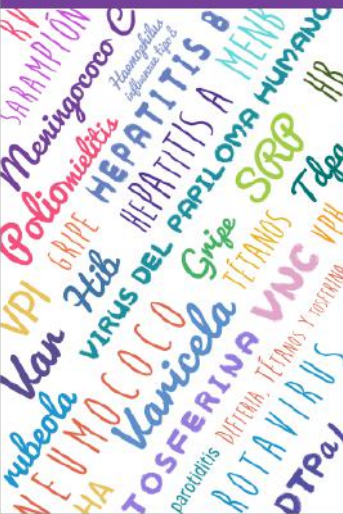 RV
SARAMPIÓN
Meningococo C
Haemophilus
influenzae tipo B
HEPATITIS B
MENB
Poliomielitis
HEPATITIS A
VIRUS DEL PAPILOMA HUMANO
HB
GRIPE
SRP
Tdpa
VPI
Hib
Gripe
TÉTANOS
VPH
Van
VNC
rubeola
NEUMOCOCO
Varicela
TOSFERINA
DIFTERIA, TÉTANOS Y TOSFERINA
HA
parotiditis
ROTAVIRUS
DTPa/